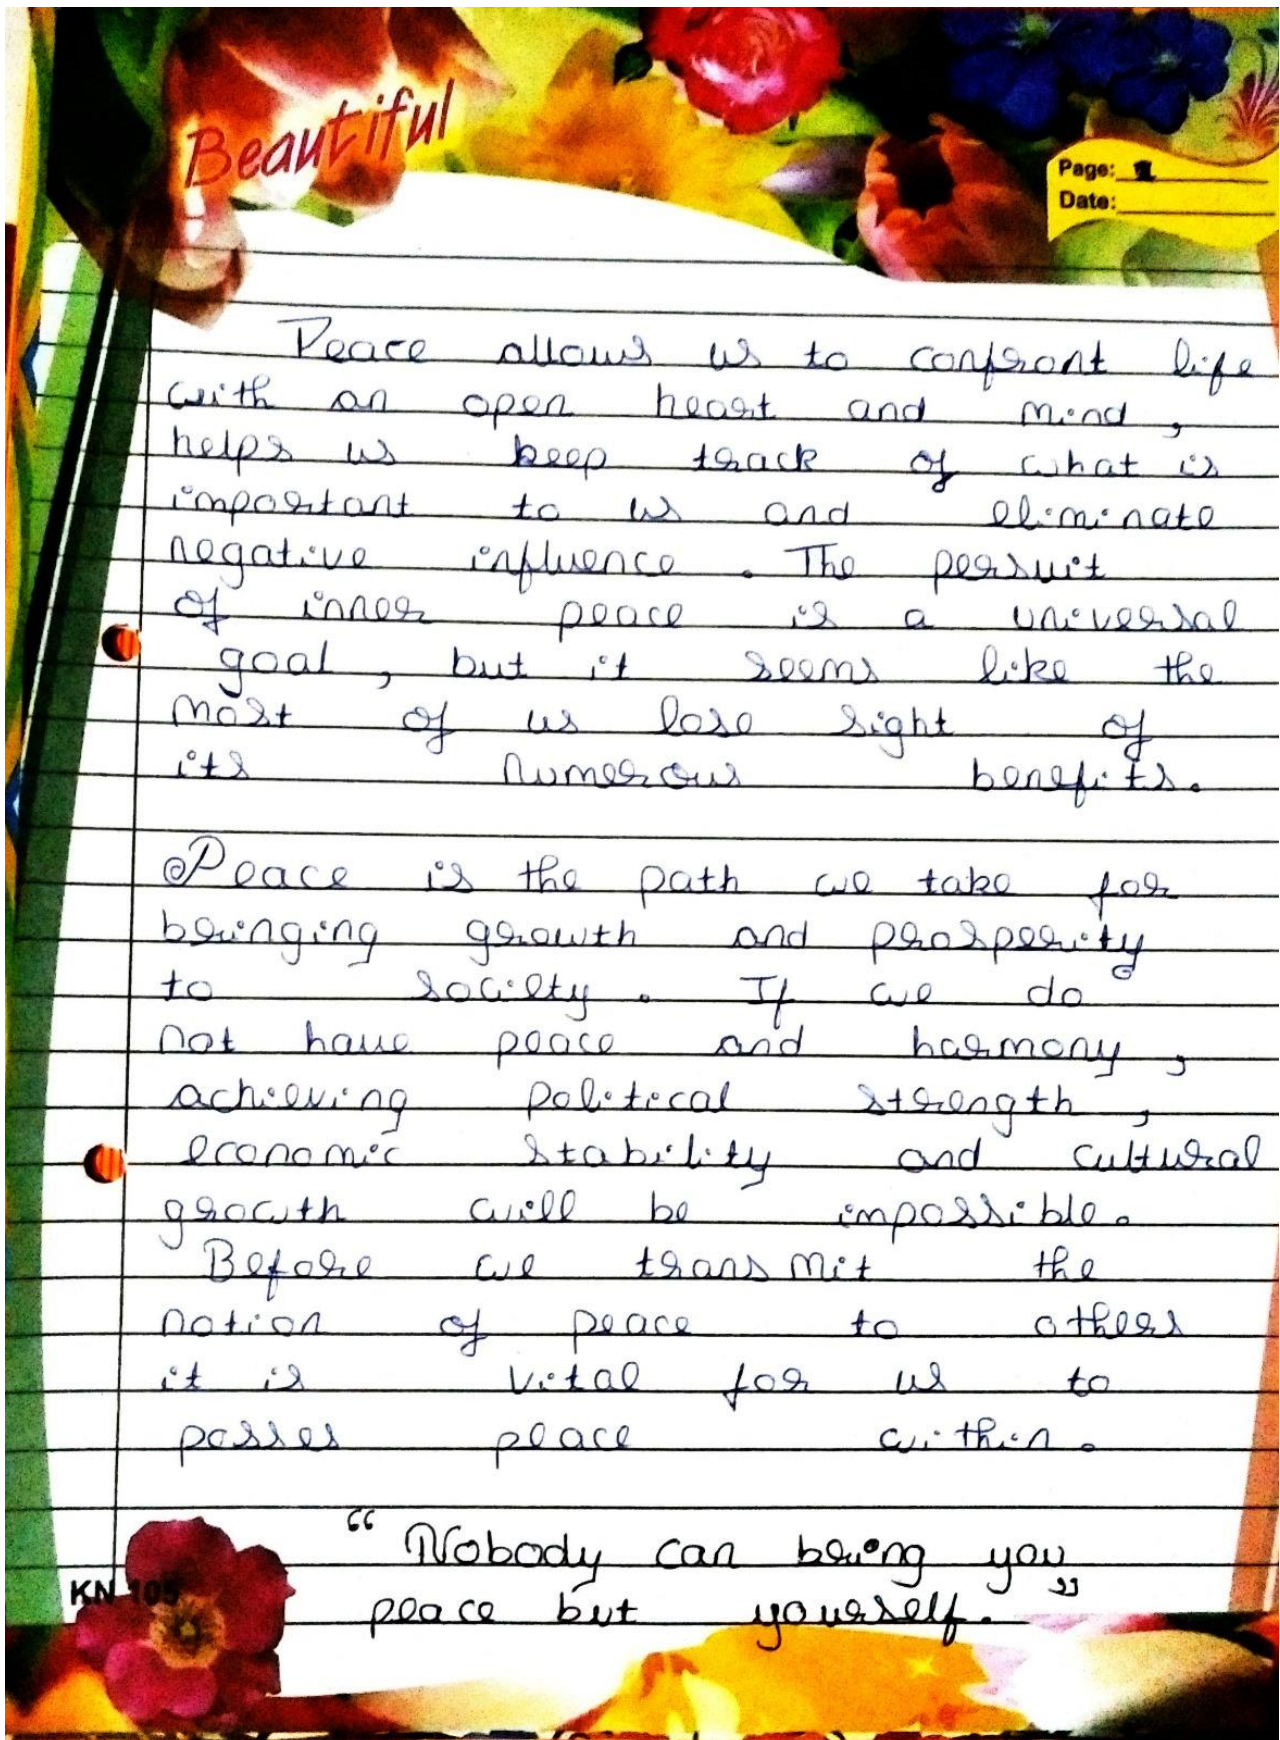 Beautiful
Page: 1
Date:
Peace allows us to confront life
with an open heart and mind,
helps us keep track of what is
important to us and eliminate
negative influence. The persuit
of inner peace is a universal
goal, but it seems like the
most of us lose sight of
its numerous benefits.
Peace is the path we take for
bringing growth and prosperity
to society. If we do
not have peace and harmony,
achieving political strength,
economic stability and cultural
growth will be impossible.
Before we transmit the
notion of peace to others
it is vital for us to
posses peace within.
"Nobody can bring you
peace but yourself."
KN 105